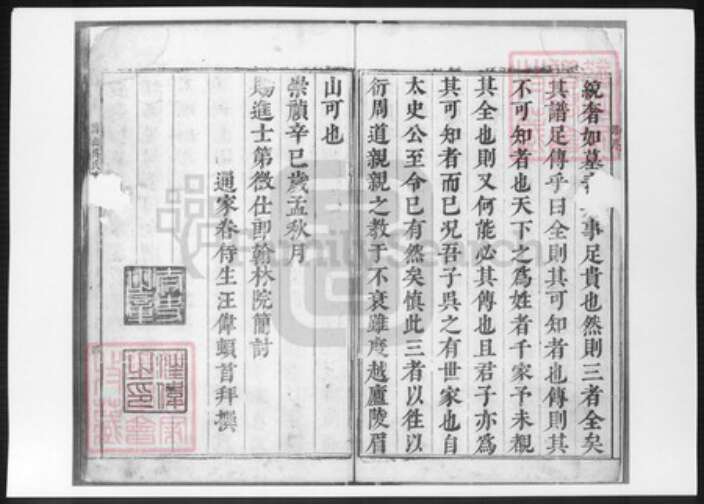 統奢如墓 事足貴也然則三者全矣
其譜足傳乎曰全則其可知者也傳則其
不可知者也天下之爲姓者千家予未覩
其全也則又何能必其傳也且君子亦爲
其可知者而已况吾子吳之有世家也自
太史公至今已有然矣慎此三者以徃以
衍周道親親之教于不衰雖度越廬陵眉
山可也
崇禎辛巳歲孟秋月
賜進士第徵仕郎翰林院簡討
通家眷侍生汪偉頓首拜撰
汪偉
之印
FamilySearch